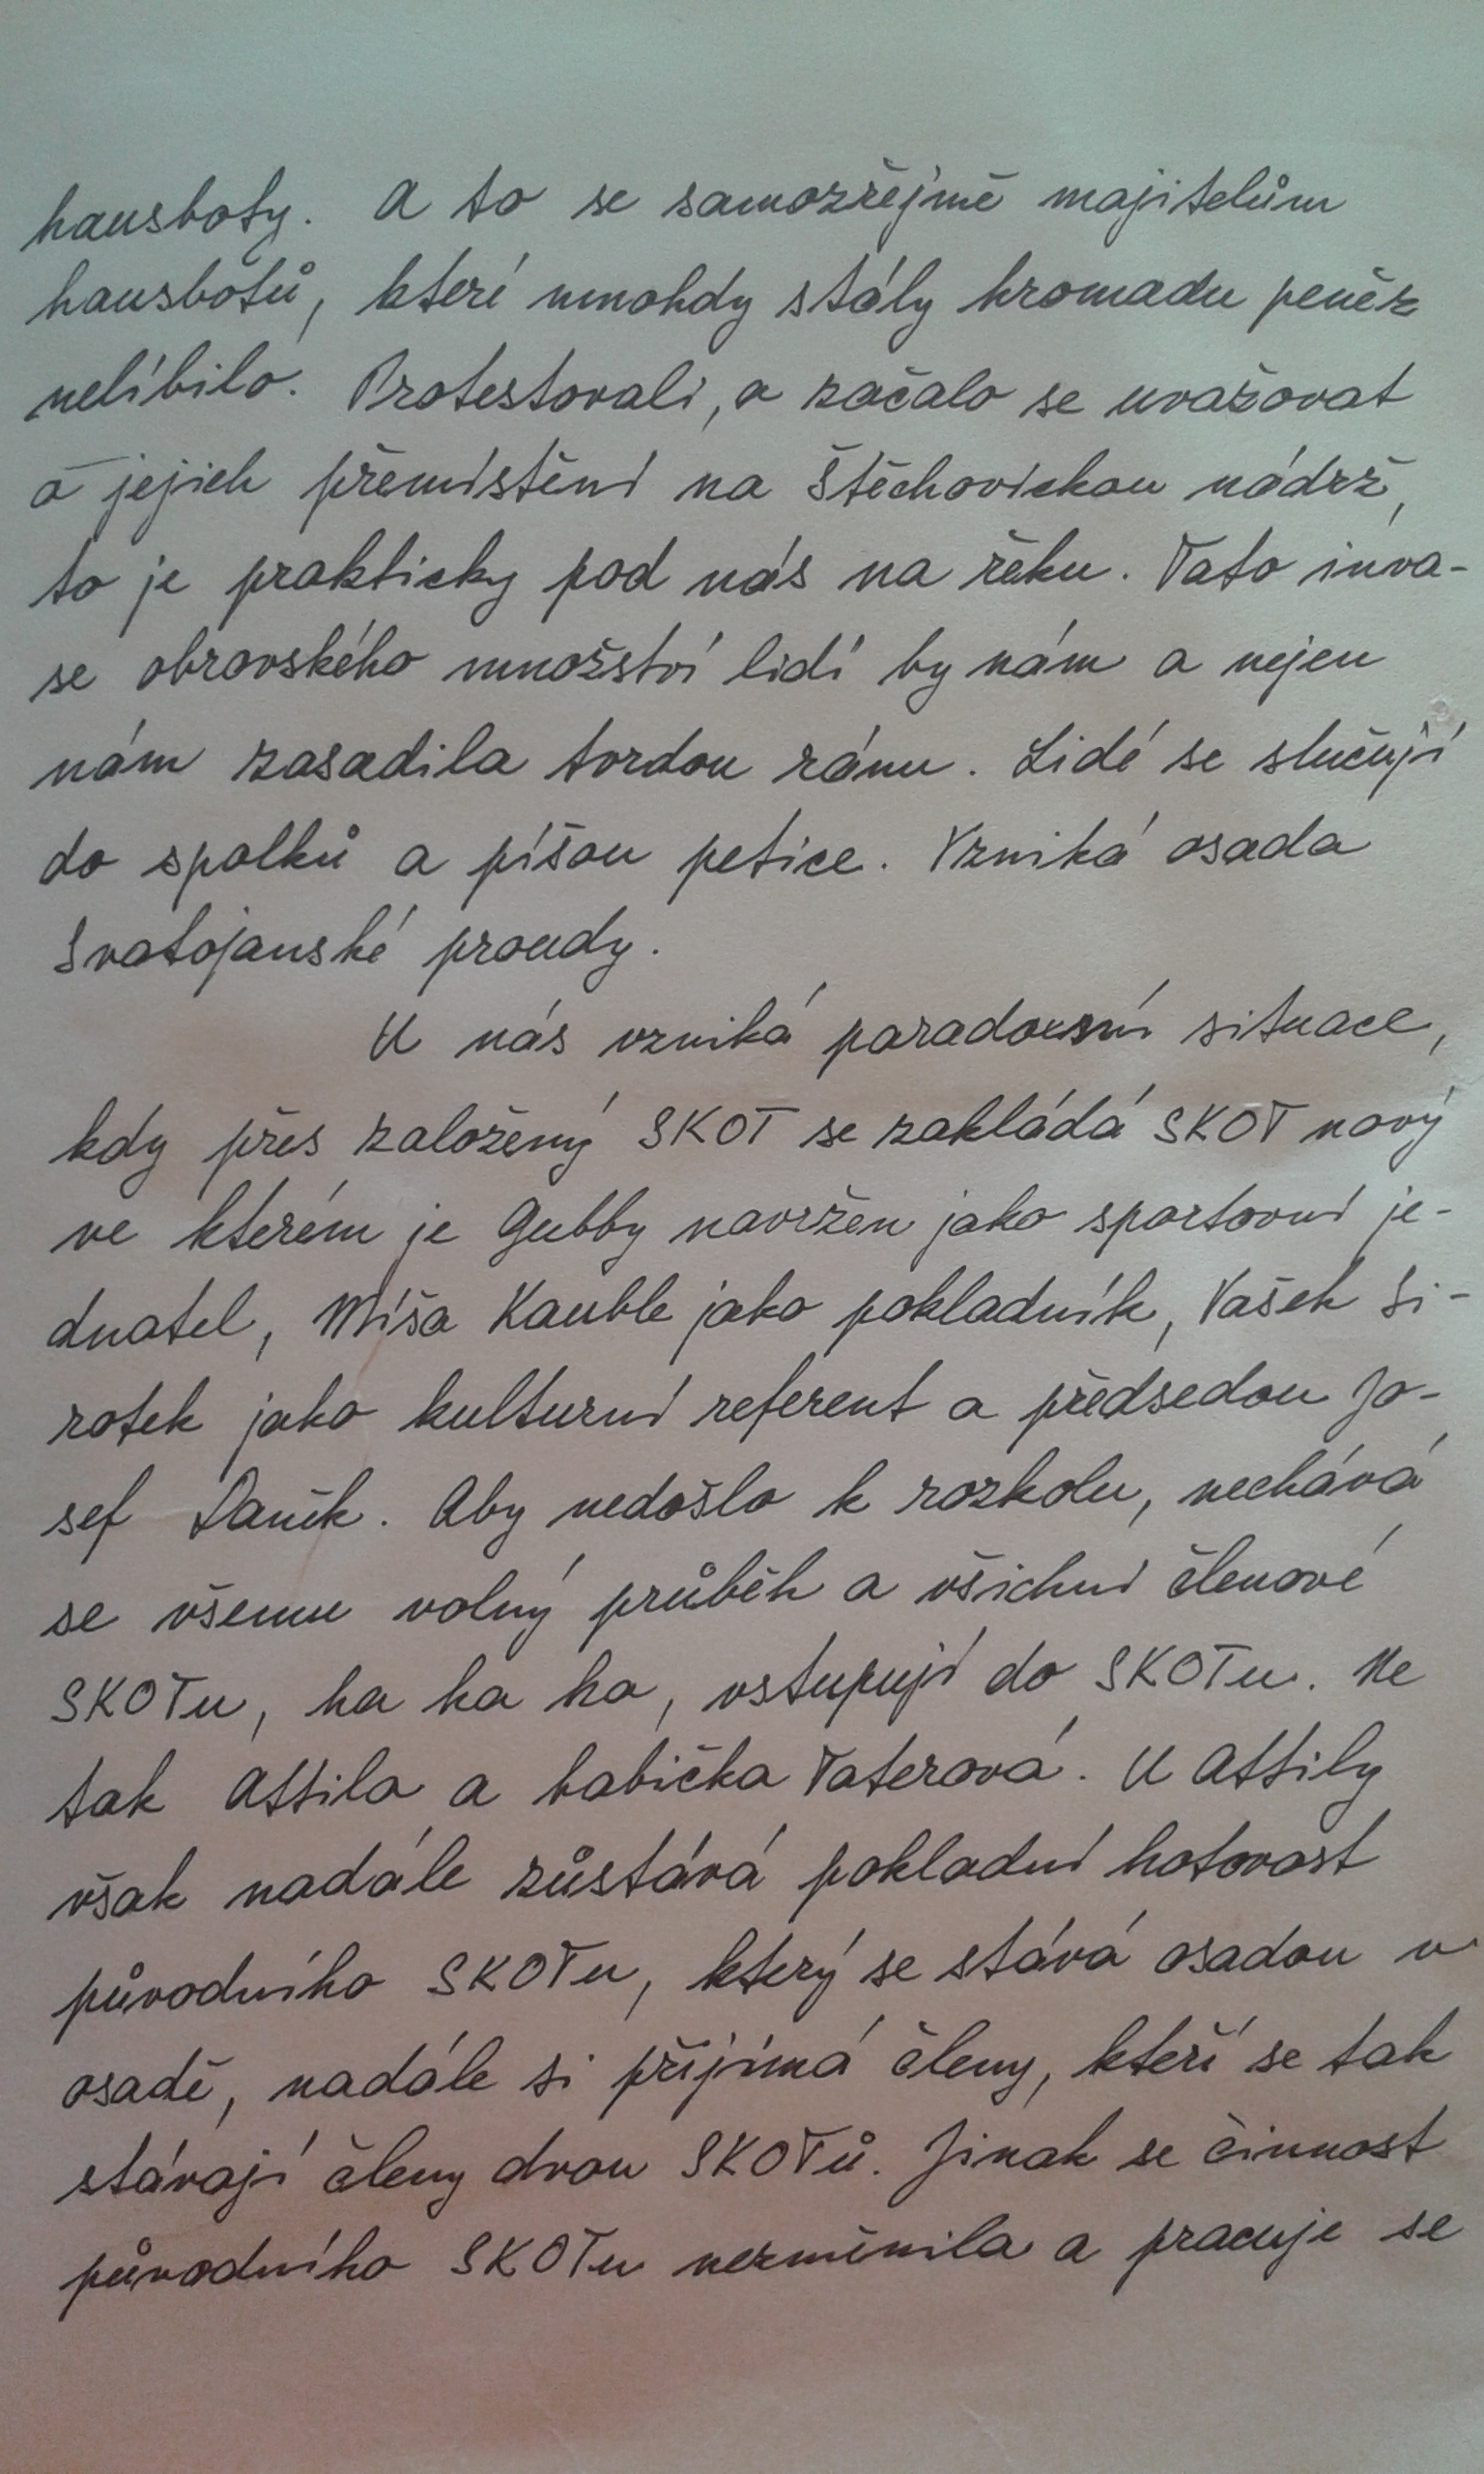 hausboty. A to se samozřejmě majitelům
hausbótů, kterí mnohdy stály hromadu peněz
nelíbilo. Protestovali, a začalo se uvažovat
o jejich přemístění na Štěchovickou nádrž,
to je prakticky pod nás na řeku. Tato inva-
se obrovského množství lidí by nám a nejen
nám zasadila tvrdou ránu. Lidé se slučují
do spolků a píšou petice. Vzniká osada
Svatojanské proudy.
U nás vzniká paradoxní situace,
kdy přes založený SKOT se zakládá SKOT nový
ve kterém je Gubby navržen jako sportovní je-
dnatel, Míša Kauble jako pokladník, Vašek Si-
rotek jako kulturní referent a předsedou Jo-
sef Daněk. Aby nedošlo k rozkolu, nechává
se všemu volný průběh a všichni členové
SKOTu, ha ha ha, vstupují do SKOTu. Ne
tak Attila a babička Taterová. U Attily
však nadále zůstává pokladní hotovost
původního SKOTu, který se stává osadou v
osadě, nadále si přijímá členy, kteří se tak
stávají členy dvou SKOTů. Jinak se činnost
původního SKOTu nezměnila a pracuje se